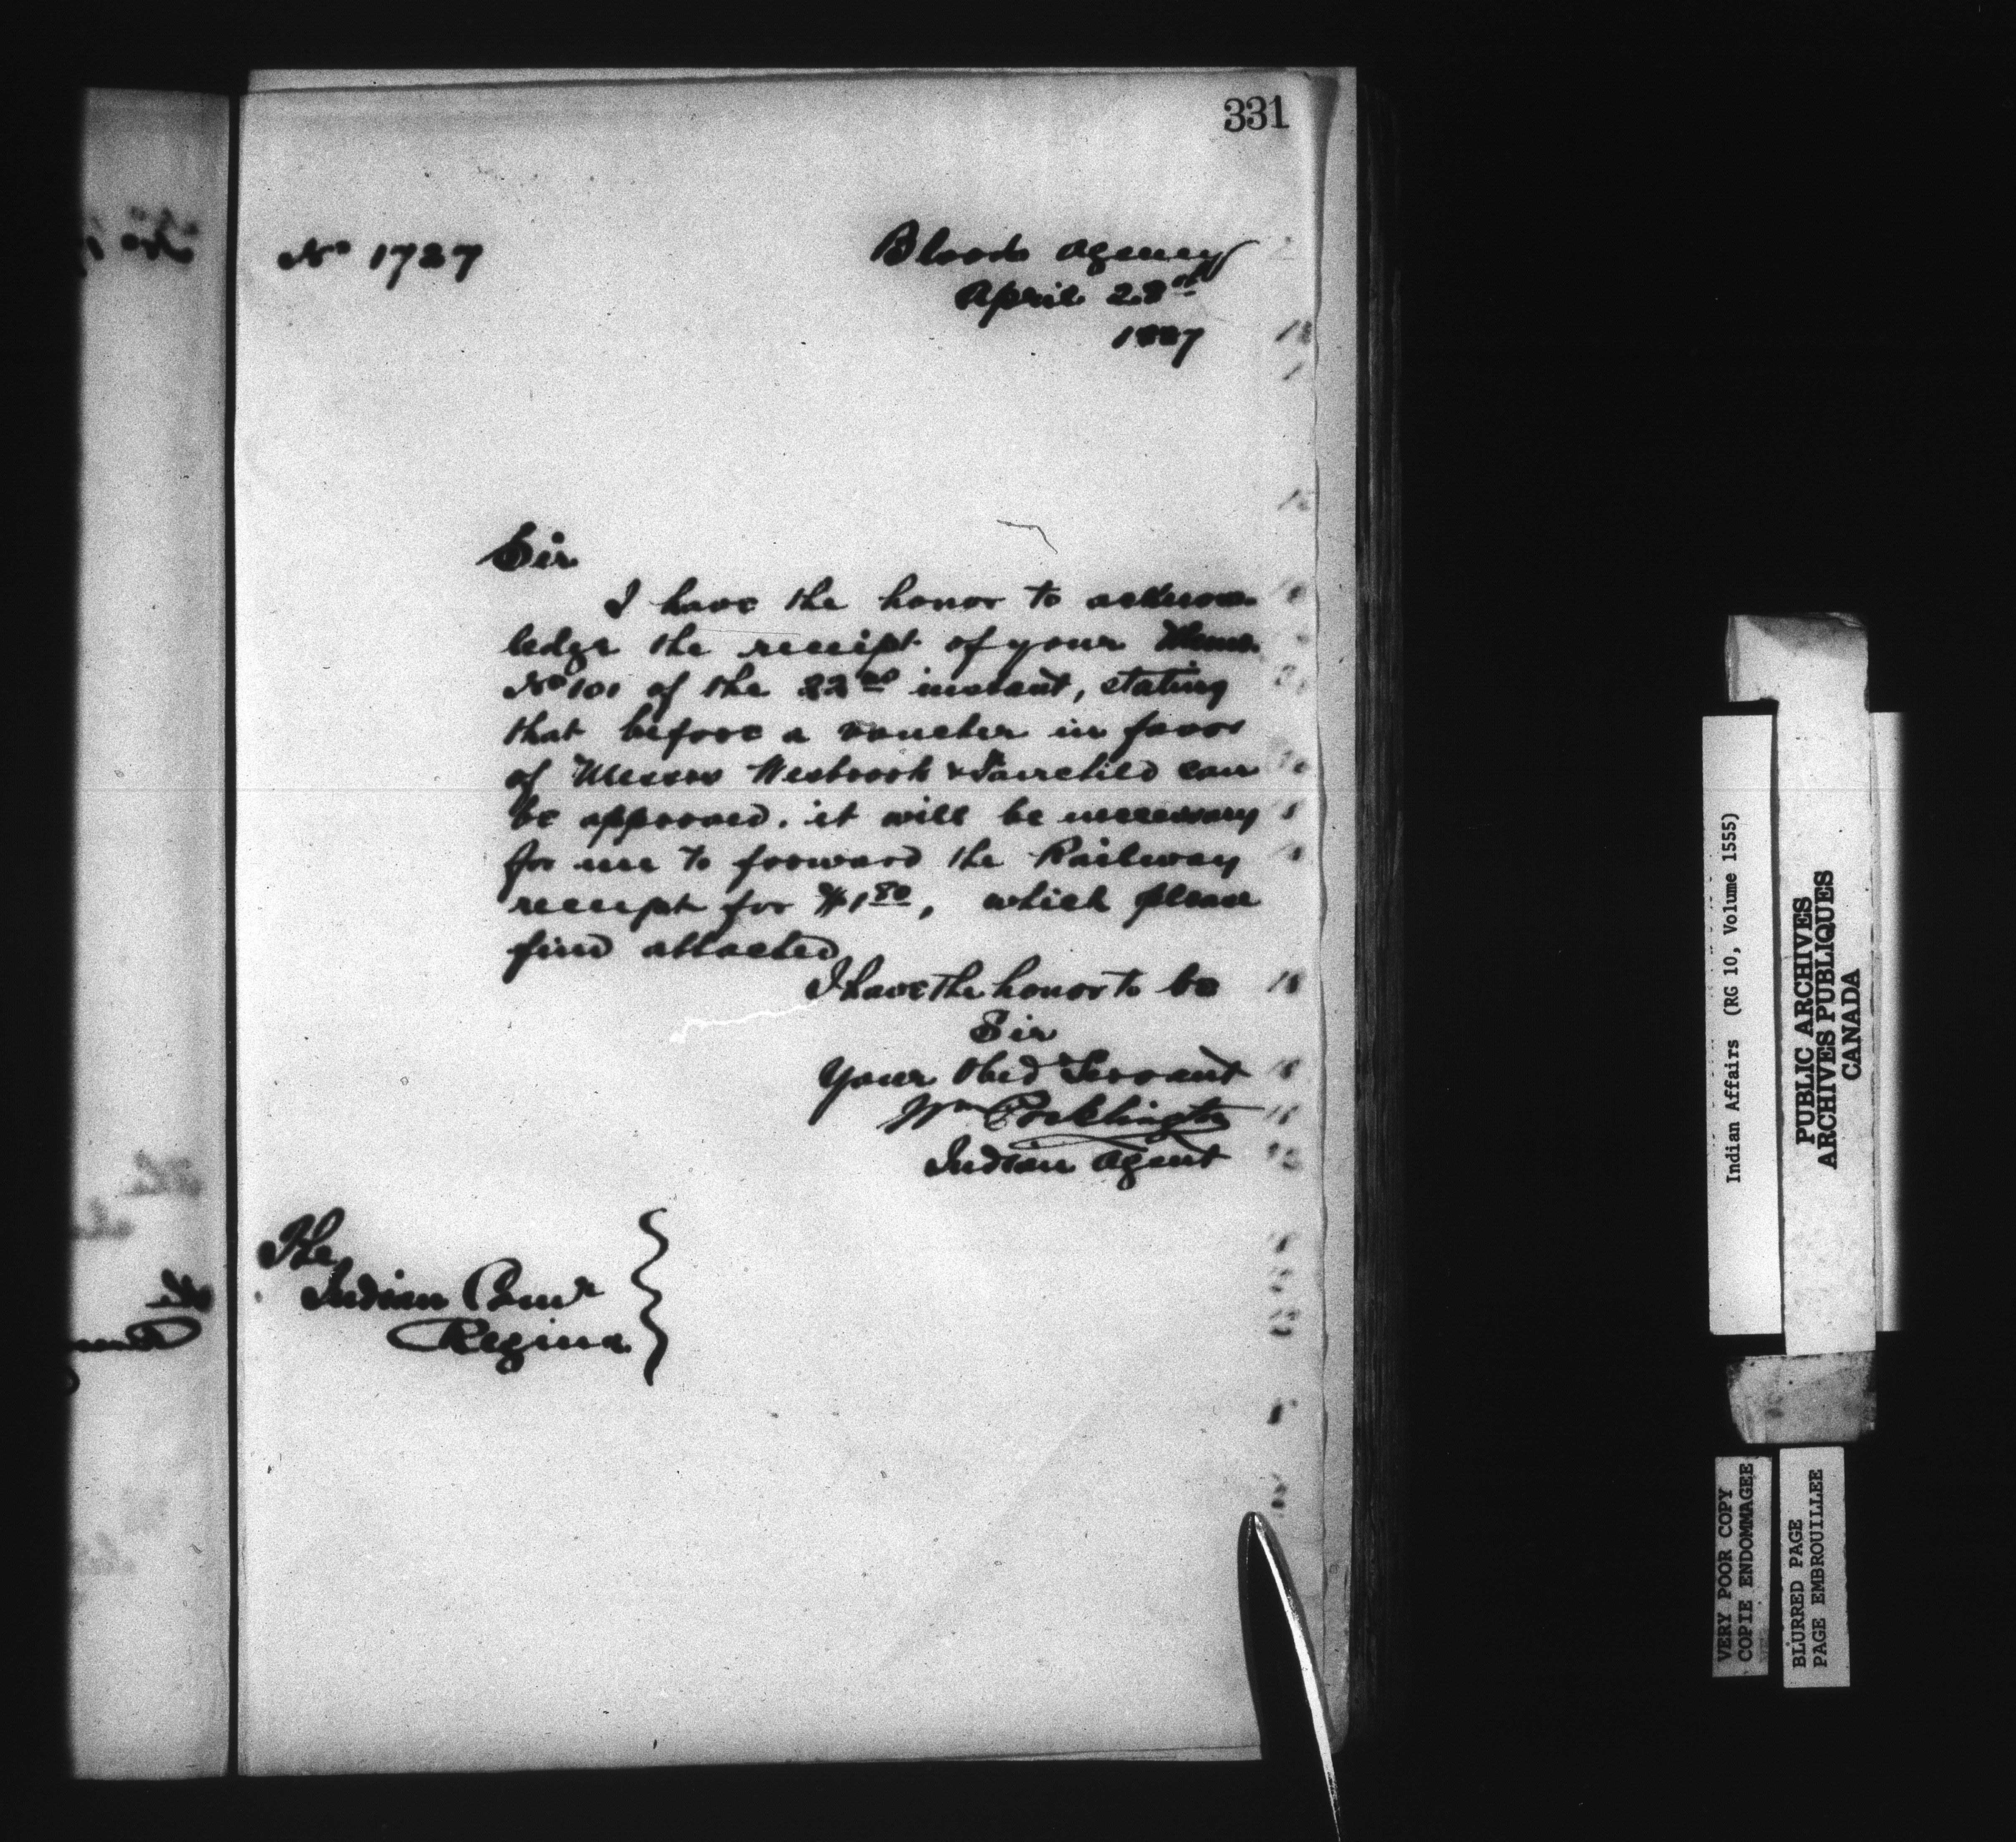 331
No 1727
Blood Agency
April 28th
1887
Sir
I have the honor to acknow-
ledge the receipt of your Memo.
No 101 of the 22nd instant, stating
that before a voucher in favor
of Messrs Wesbrook & Fairchild can
be approved. it will be necessary
for me to forward the Railway
receipt for $1.80, which please
find attached
I have the honor to be
Sir
Your Obed Servant
Wm Pocklington
Indian Agent
The
Indian Comr
Regina
Indian Affairs (RG 10, Volume 1555)
PUBLIC ARCHIVES
ARCHIVES PUBLIQUES
CANADA
VERY POOR COPY
COPIE ENDOMMAGEE
BLURRED PAGE
PAGE EMBROUILLEE